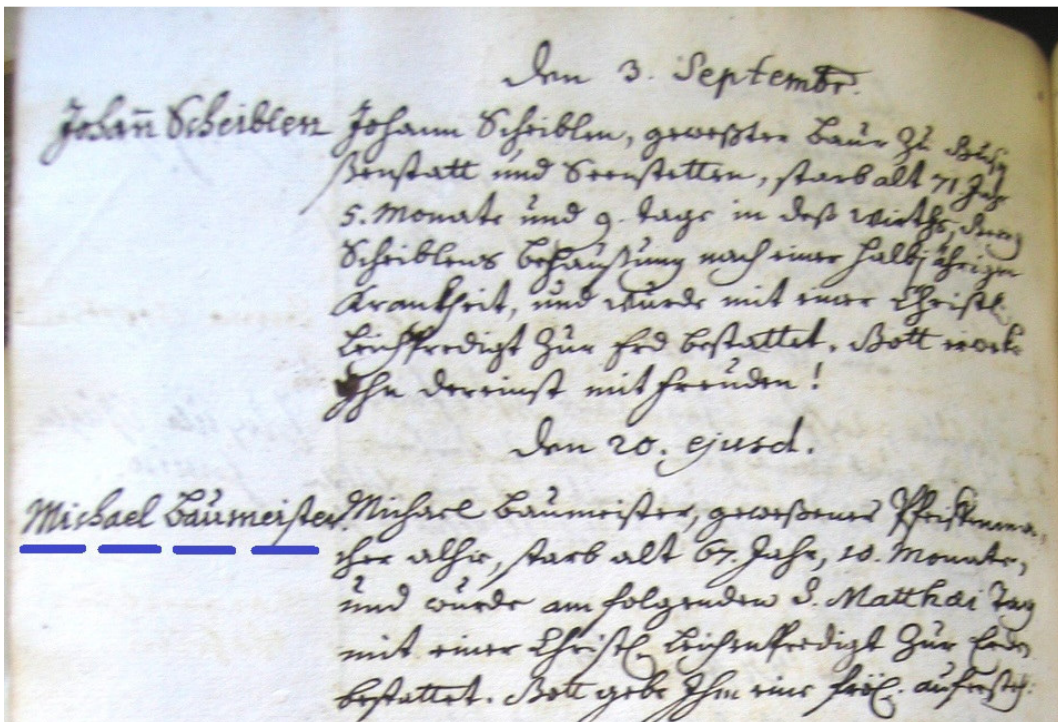 den 3. Septembr.
Johañ Scheiblen Johann Scheiblen, geweßter Baur zu
ßenstatt und Seenstetten, starb alt 71. Jahr
5. Monate und 9. tage in deß Wirths,
Scheiblens Behaußung nach einer halbjährigen
Krankheit, und wurde mit einer Christl.
Leichpredigt zur Erd bestattet. Gott wecke
Ihn dereinst mit Freuden!
den 20. ejusd.
Michael Baumeister. Michael Baumeister, geweßener Pfeiffenma-
cher alhir, starb alt 67. Jahr, 10. Monate,
und wurde am folgenden d. Matthæi Tag
mit einer Christl. Leichenpredigt zur Erden
bestattet. Gott gebe Ihm eine fröl. aufersteh: